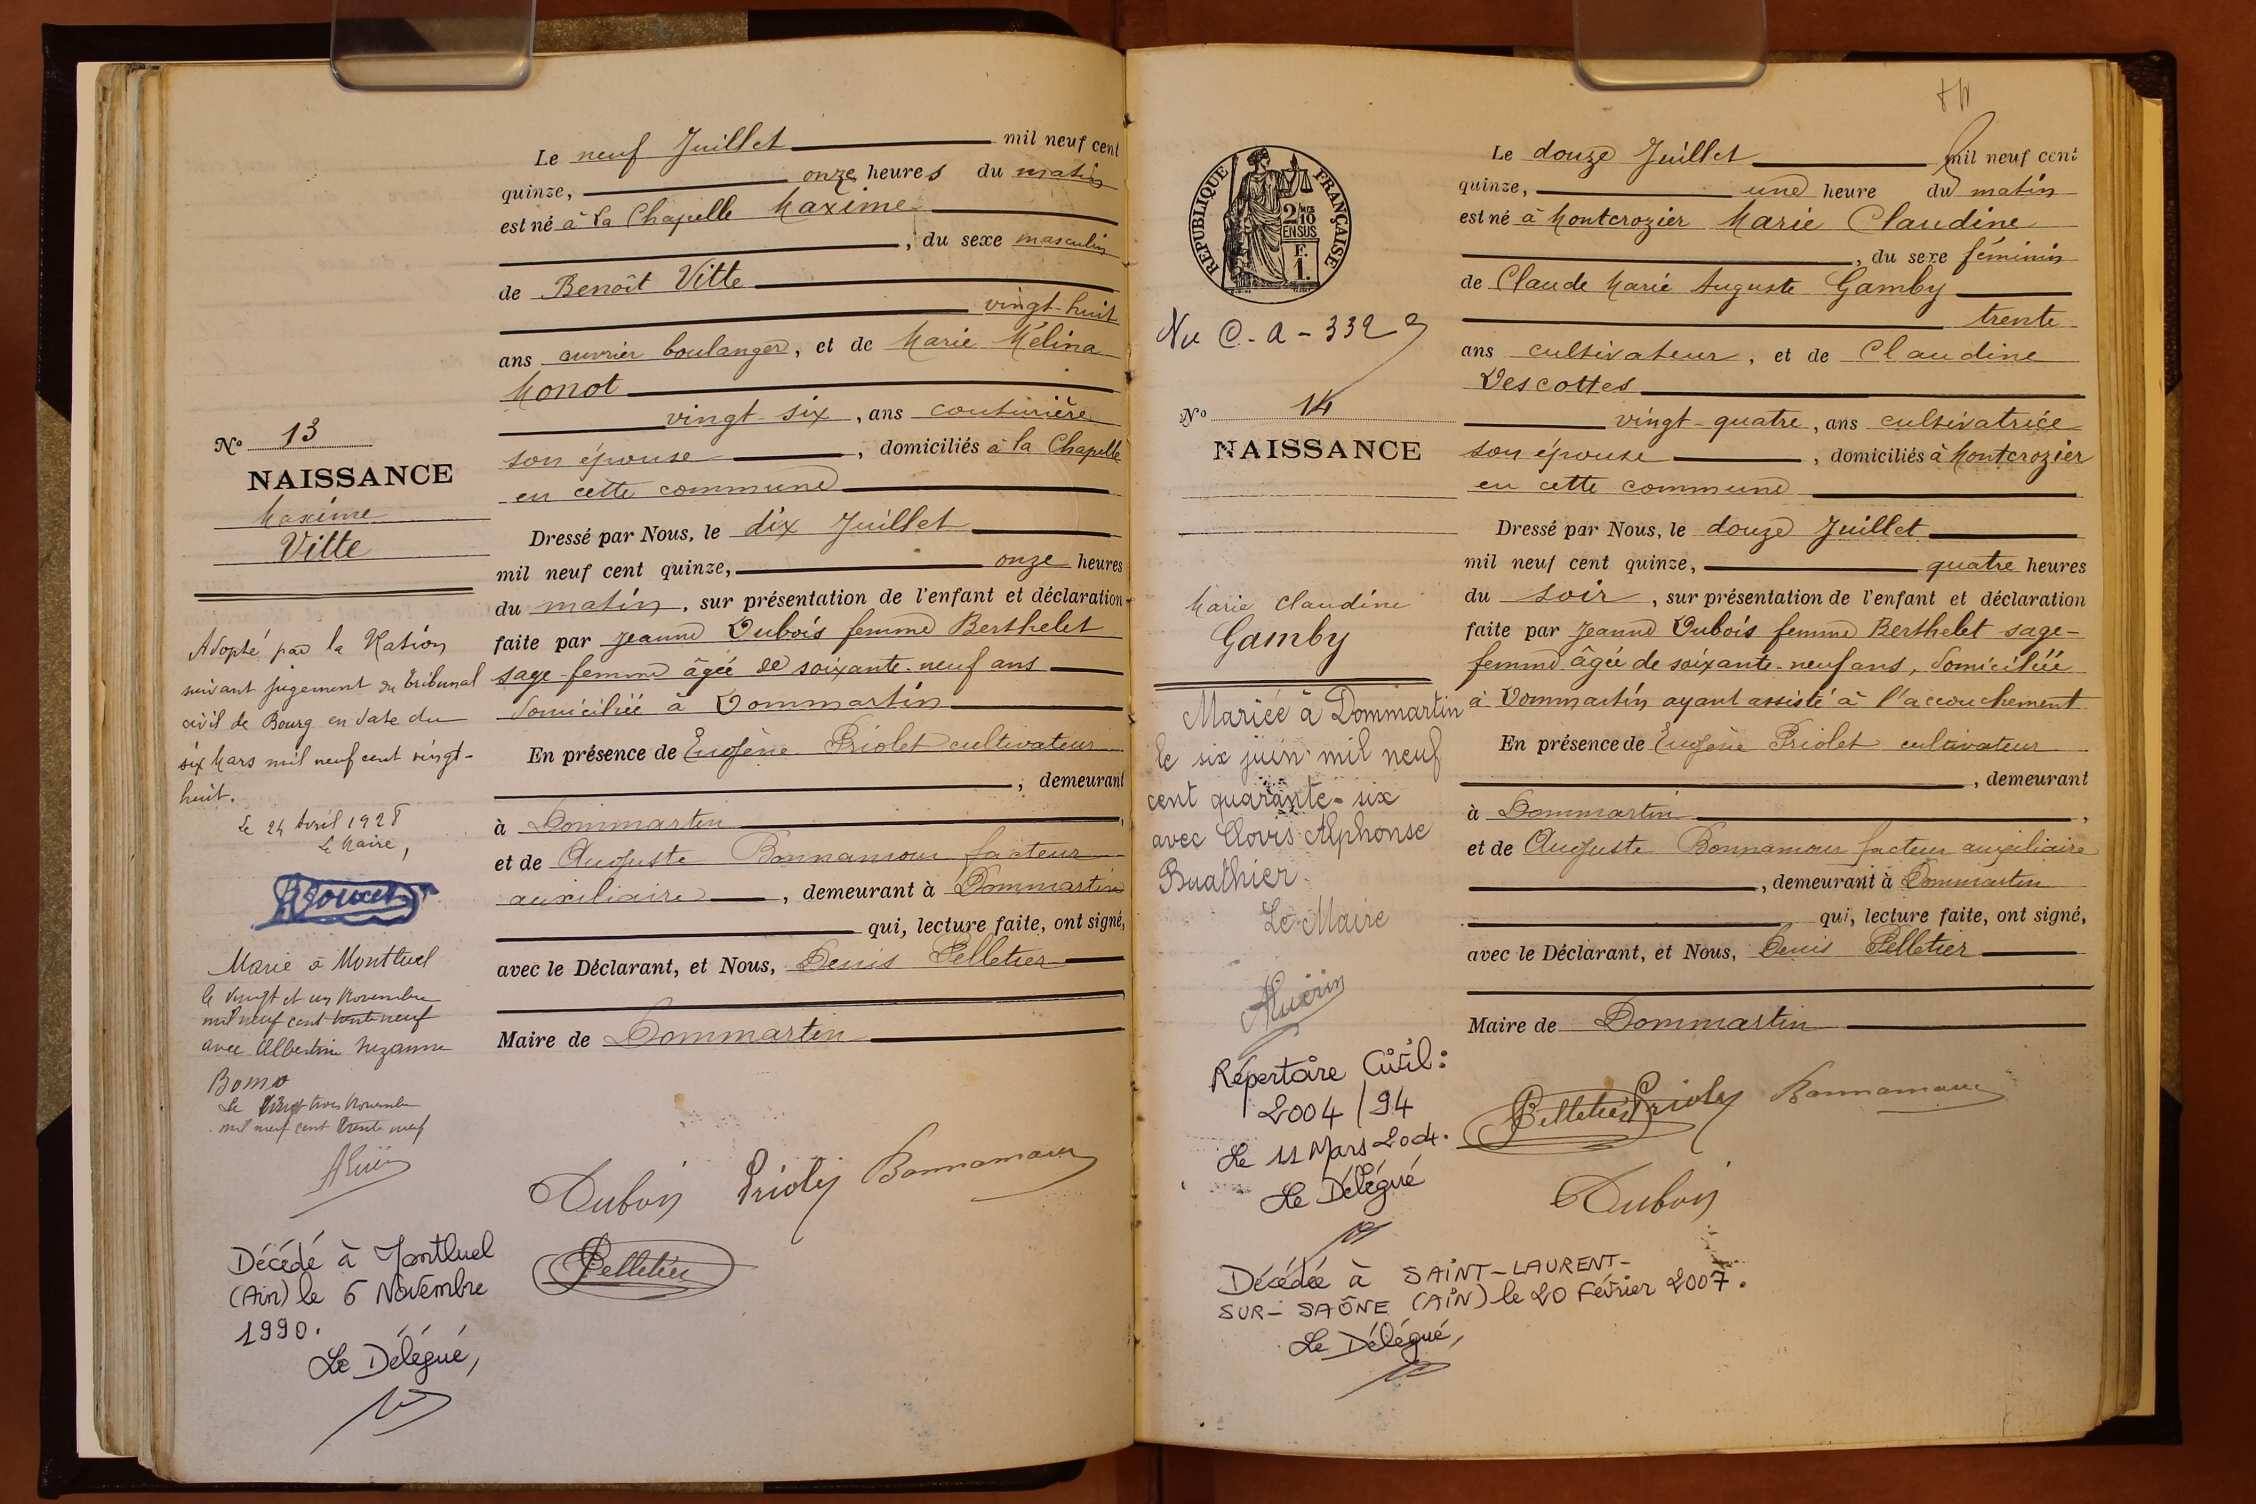 Le neuf Juillet mil neuf cent
quinze, onze heures du matin
est né à La Chapelle Maxime
, du sexe masculin
de Benoît Vitte
vingt-huit
ans ouvrier boulanger, et de Marie Mélina
Monot
vingt-six, ans couturière
son épouse, domiciliés à la Chapelle
en cette commune
Dressé par Nous, le dix Juillet
mil neuf cent quinze, onze heures
du matin, sur présentation de l'enfant et déclaration
faite par Jeanne Dubois femme Berthelet
sage-femme âgée de soixante-neuf ans
domiciliée à Dommartin
En présence de Eugène Priolet cultivateur
, demeurant
à Dommartin,
et de Auguste Bonnamour facteur
auxiliaire, demeurant à Dommartin
qui, lecture faite, ont signé,
avec le Déclarant, et Nous, Denis Pelletier
Maire de Dommartin
Dubois Priolet Bonnamour
Pelletier
No 13
NAISSANCE
Maxime
Vitte
Adopté par la Nation
suivant jugement du tribunal
civil de Bourg en date du
six Mars mil neuf cent vingt-
huit.
Le 24 Avril 1928
Le Maire,
Marié à Montluel
le vingt et un Novembre
mil neuf cent trente neuf
avec Albertine Suzanne
Le vingt trois Novembre
mil neuf cent trente neuf
Décédé à Montluel
(Ain) le 6 Novembre
1990.
Le Délégué,
RÉPUBLIQUE FRANÇAISE
2/10
EN SUS
F.
1.
Nu C-a-332
No 14
NAISSANCE
Marie Claudine
Gamby
Mariée à Dommartin
le six juin mil neuf
cent quarante-six
avec Clovis Alphonse
Buathier.
Le Maire
Répertoire Civil:
2004/94
Le 11 Mars 2004.
Le Délégué
Décédée à SAINT-LAURENT-
SUR-SAÔNE (AIN) le 20 Février 2007.
Le Délégué,
Le douze Juillet mil neuf cent
quinze, une heure du matin
est né à Montcrozier Marie Claudine
, du sexe féminin
de Claude Marie Auguste Gamby
trente
ans cultivateur, et de Claudine
Descottes
vingt-quatre, ans cultivatrice
son épouse, domiciliés à Montcrozier
en cette commune
Dressé par Nous, le douze Juillet
mil neuf cent quinze, quatre heures
du soir, sur présentation de l'enfant et déclaration
faite par Jeanne Dubois femme Berthelet sage-
femme âgée de soixante-neuf ans, domiciliée
à Dommartin ayant assisté à l'accouchement
En présence de Eugène Priolet cultivateur
, demeurant
à Dommartin,
et de Auguste Bonnamour facteur auxiliaire
, demeurant à Dommartin
qui, lecture faite, ont signé,
avec le Déclarant, et Nous, Denis Pelletier
Maire de Dommartin
Pelletier Priolet Bonnamour
Dubois